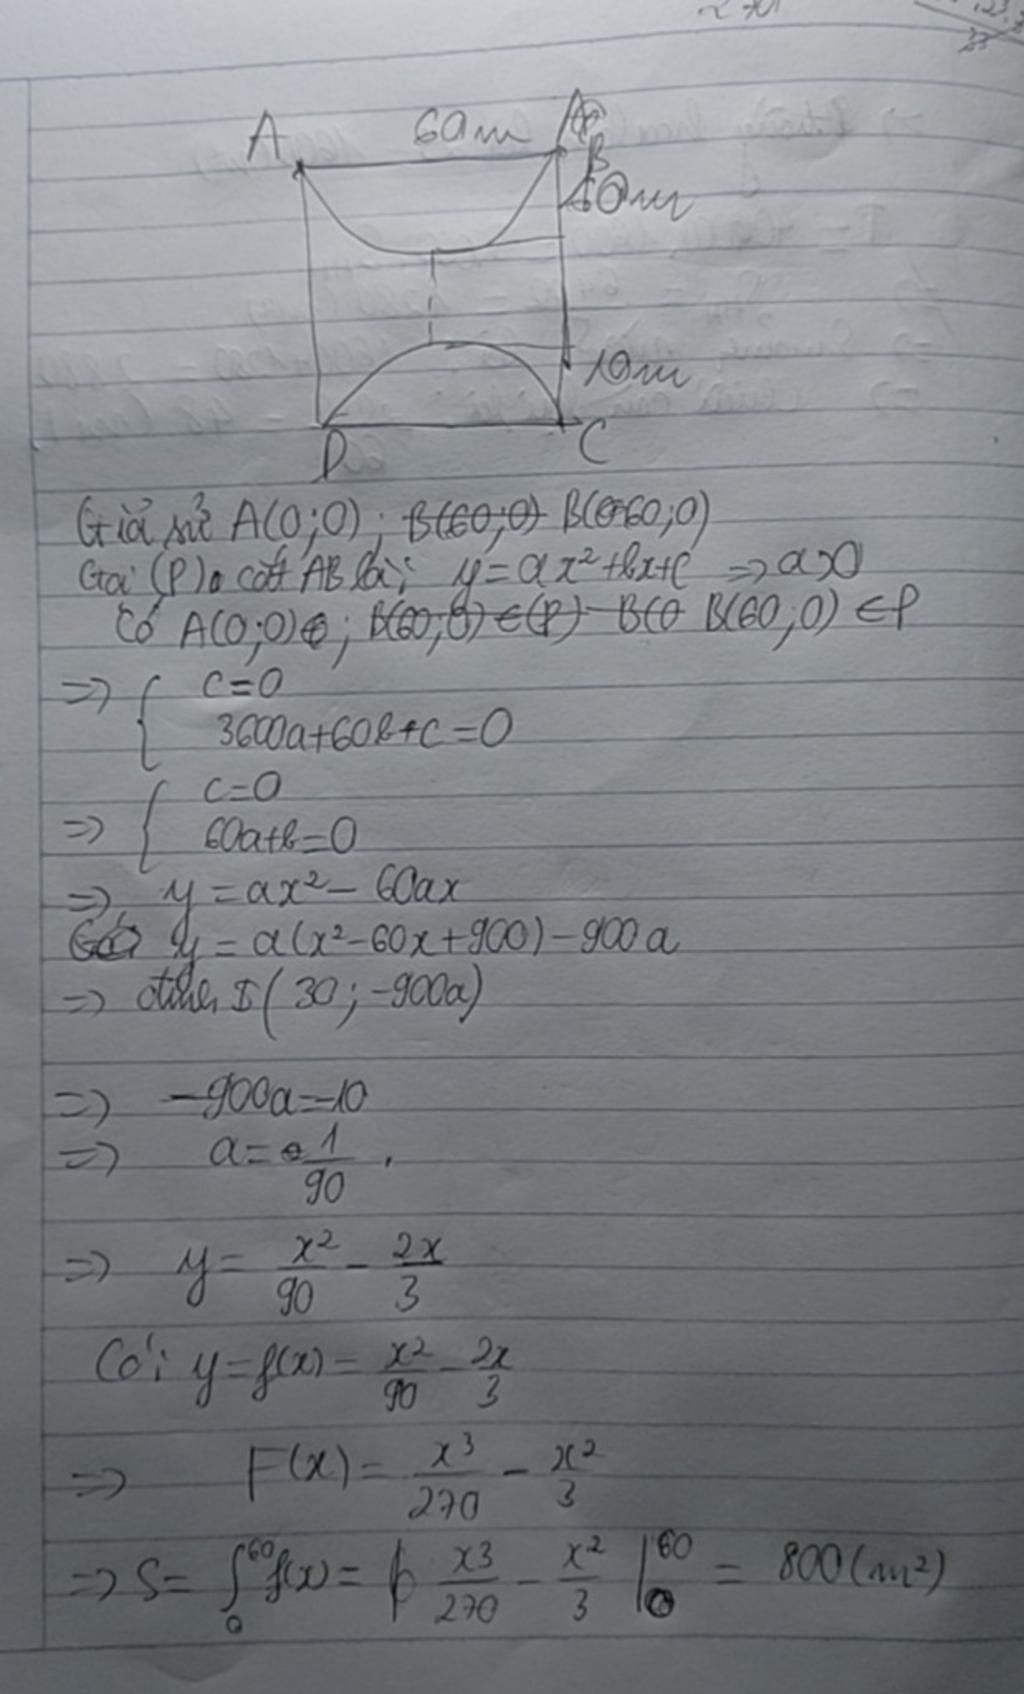 A 60m B
10m
10m
D C
Giả sử A(0;0); B(60;0) B(60;0)
Gọi (P) cắt AB là: y=ax²+bx+c => a>0
Có A(0;0); B(60;0)∈(P) B(0 B(60;0)∈P
=> { c=0
3600a+60b+c=0
=> { c=0
60a+b=0
=> y=ax²-60ax
y=a(x²-60x+900)-900a
=> đỉnh I(30;-900a)
=> -900a=-10
=> a= 1/90.
=> y= x²/90 - 2x/3
Có: y=f(x)= x²/90 - 2x/3
=> F(x)= x³/270 - x²/3
=> S= ∫₀⁶⁰ f(x)= x3/270 - x²/3 |₀⁶⁰ = 800(m²)